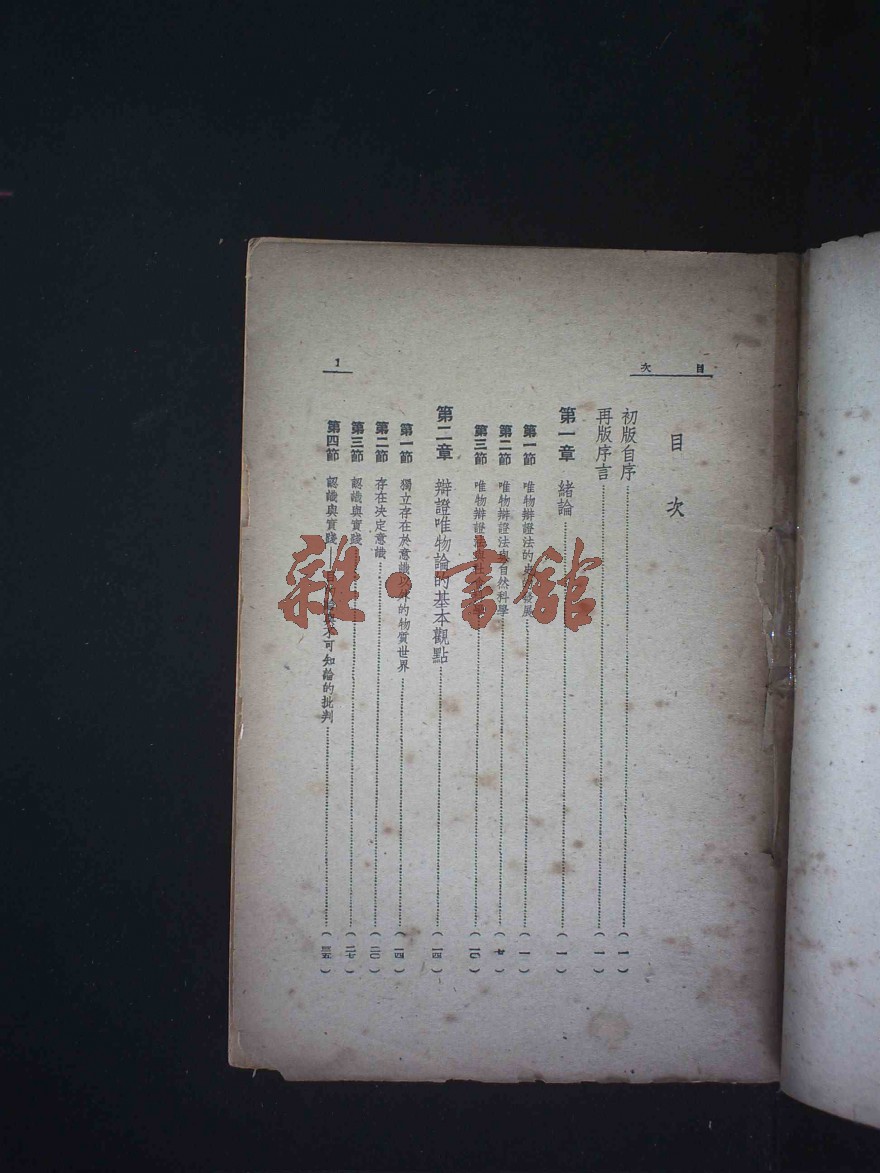 目次
1
目次
初版自序（一）
再版序言（一）
第一章 緒論（一）
第一節 唯物辯證法的 發展（一）
第二節 唯物辯證法與自然科學（七）
第三節 唯物辯證法
第二章 辯證唯物論的基本觀點（一四）
第一節 獨立存在於意識以外的物質世界（一四）
第二節 存在決定意識（二〇）
第三節 認識與實踐（二七）
第四節 認識與實踐 不可知論的批判
雜·書館